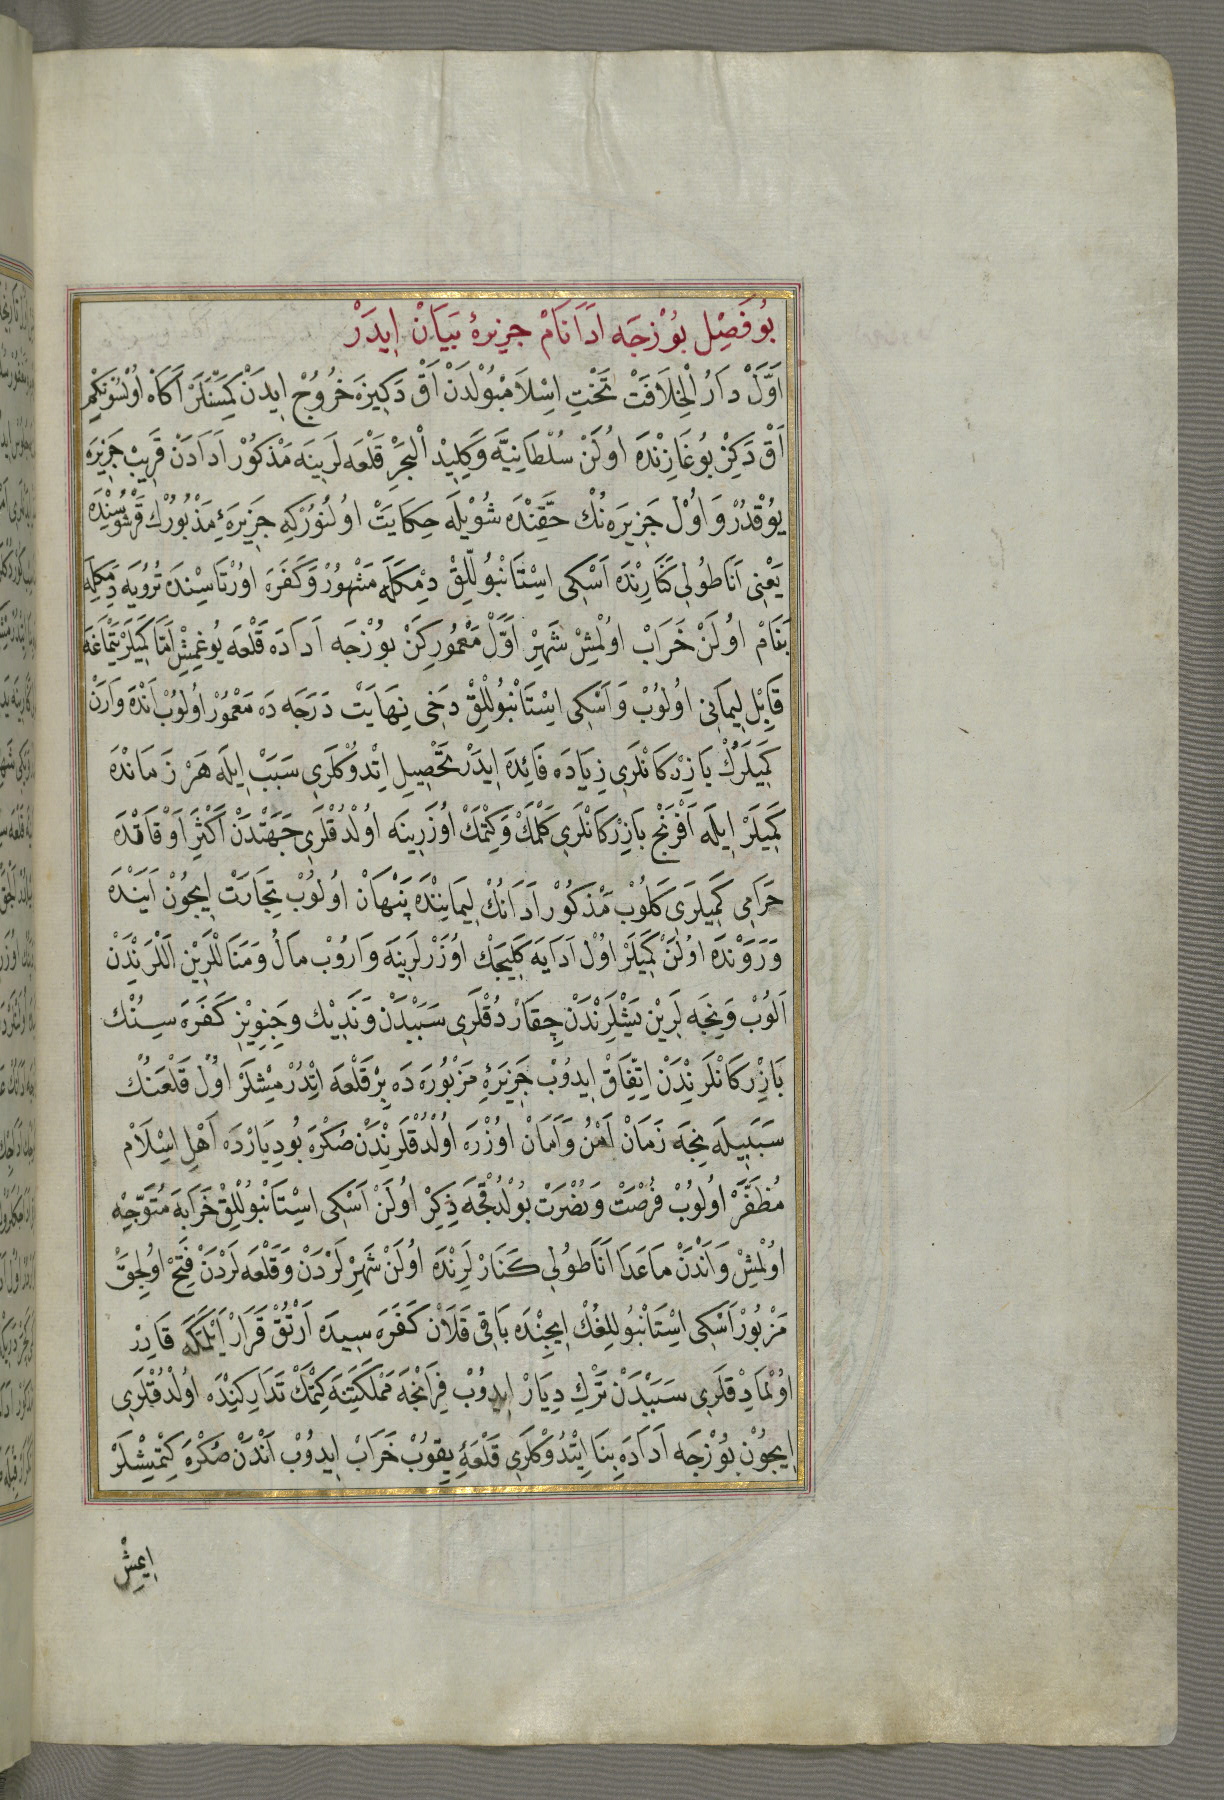 بُو فَصِل بُوزْجَه اَدَا نَامْ جزیرهٔ بَیَانْ اِیدَرْ
اَوَّلْ دَارُ الْخِلَافَتْ تَخْتِ اِسْلَامْبُوْلْدَنْ اَقْ دَكِیزَه خُرُوْجْ اِیدَنْ كِمَسْنَلَرْ اَكَاهْ اُوْلْسُونْكِمْ
اَقْ دَكِزْ بُوغَازِنْدَه اُولَنْ سُلْطَانِیَّه وَكِلِیدُ الْبَحْرِ قَلْعَه لَرِینَه مَذْكُوْرْ اَدَادَنْ قَرِیبْ جَزِیرَه
یُوْقْدُرْ وَ اُوْلْ جَزِیرَه نُكْ حَقِّنْدَه شُوْیلَه حِكَایَتْ اُولُنُوْرْكِه جَزِیرَهٔ مَذْبُورُكْ قَرْشُوسِنْدَه
یَعْنِی اَنَاطُولِی كَنَارِنْدَه اَسْكِی اِسْتَانْبُولْلِقْ دِمِكْلَه مَشْهُورْ وَكَفَرَه اُوْرْتَاسِنْدَه تُرُوْیَه دِمِكْلَه
بَنَامْ اُولَنْ خَرَابْ اُولْمِشْ شَهِرْ اَوَّلْ مَعْمُورِكَنْ بُوْزْجَه اَدَادَه قَلْعَه یُوغِمِشْ اَمَّا كَمِیلَرْ یَتْمَاغَه
قَابِلْ لِیمَانِی اُولُوبْ وَاَسْكِی اِسْتَانْبُولْلِقْ دَخِی نِهَایَتْ دَرَجَه دَه مَعْمُوْرْ اُولُوبْ اَنْدَه وَارَنْ
كَمِیلَرُكْ بَازِرْكَانْلَرِی زِیَادَه فَائِدَه اِیدَرْ تَحْصِیلِ اِتْدُوْكْلَرِی سَبَبْ اِیلَه هَرْ زَمَانْدَه
كَمِیلَرْ اِیلَه اَفْرَنْجِ بَازِرْكَانْلَرِی كَلْمَكْ وَكِتْمَكْ اُوْزَرِینَه اُولْدُقْلَرِی جَهَتْدَنْ اَكْثَرِ اَوْقَاتْدَه
حَرَامِی كَمِیلَرِی كَلُوْبْ مَذْكُوْرْ اَدَانُكْ لِیمَانِنْدَه پَنْهَانْ اُولُوبْ تِجَارَتْ اِیچُونْ آیَنْدَه
وَرَوَنْدَه اُولَنْ كَمِیلَرْ اُوْلْ اَدَایَه كَلِیجَكْ اُوْزَرْلَرِینَه وَارُوْبْ مَالْ وَمَنَالْلَرِینْ اَللَّرِنْدَنْ
اَلُوْبْ وَنِیجَه لَرِینْ یَشْلَرِنْدَنْ چِقَارْدُقْلَرِی سَبَبْدَنْ وَنَدِیكْ وَجِنِوِیزِ كَفَرَه سِنُكْ
بَازِرْكَانْلَرِنْدَنْ اِتِّفَاقْ اِیدُوْبْ جَزِیرَهٔ مَزْبُورَه دَه بِرْ قَلْعَه اِتْدُرْمِشْلَرْ اُوْلْ قَلْعَنُكْ
سَبَبِیلَه نِیجَه زَمَانْ اَمْنُ وَاَمَانْ اُوْزْرَه اُوْلْدُقْلَرِنْدَنْ صُكْرَه بُودِیَارْدَه اَهْلِ اِسْلَامْ
مُظَفَّرْ اُولُوبْ فُرْصَتْ وَنُصْرَتْ بُوْلْدُقْجَه ذِكِرْ اُولَنْ اَسْكِی اِسْتَانْبُولْلِقْ خَرَابَه مُتَوَجِّه
اُولْمِشْ وَاَنْدَنْ مَاعَدَا اَنَاطُولِی كَنَارْلَرِنْدَه اُولَنْ شَهِرْلَرْدَنْ وَقَلْعَه لَرْدَنْ فَتِحْ اُولِجَقْ
مَزْبُورْ اَسْكِی اِسْتَانْبُولْلِغُكْ اِیچِنْدَه بَاقِی قَلَانْ كَفَرَه سِیدَه اَرْتُقْ قَرَارْ اَیْلَمَكَه قَادِرْ
اُوْلْمَادِقْلَرِی سَبَبْدَنْ تَرْكِ دِیَارْ اِیدُوْبْ فِرَانْجَه مَمْلَكَتِنَه كِتْمَكْ تَدَارِكِنْدَه اُولْدُقْلَرِی
اِیچُوْنْ بُوْزْجَه اَدَادَه بِنَا اِیتْدُوْكْلَرِی قَلْعَهٔ یِقُوْبْ خَرَابْ اِیدُوْبْ اَنْدَنْ صُكْرَه كِتْمِشْلَرْ
اِیمِشْ